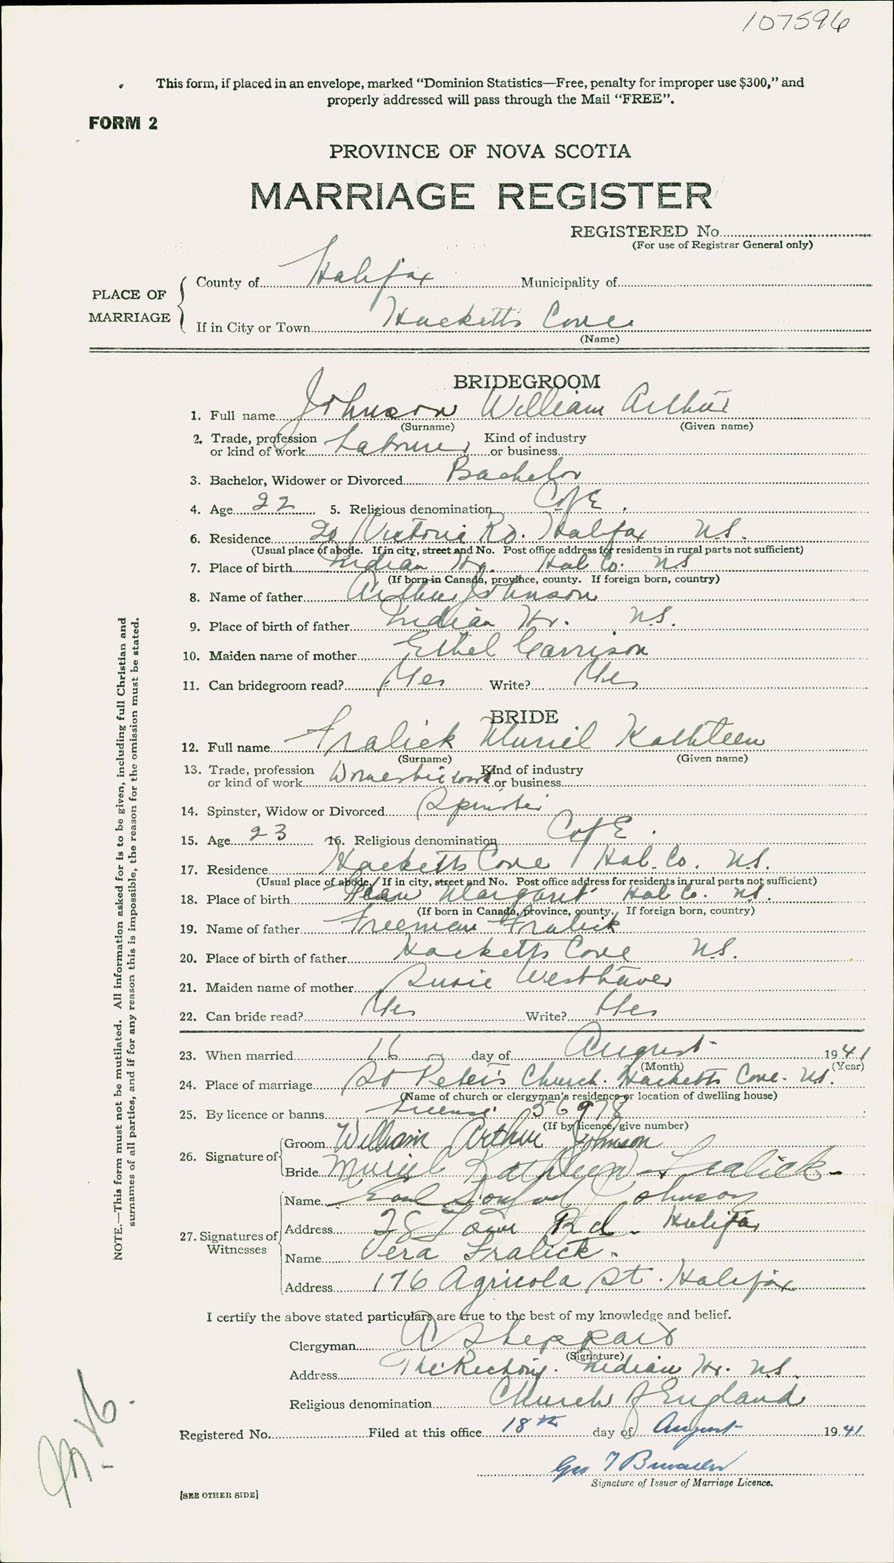 107596
This form, if placed in an envelope, marked "Dominion Statistics—Free, penalty for improper use $300," and
properly addressed will pass through the Mail "FREE".
FORM 2
PROVINCE OF NOVA SCOTIA
MARRIAGE REGISTER
REGISTERED No.
(For use of Registrar General only)
PLACE OF MARRIAGE
County of Halifax Municipality of
If in City or Town Hacketts Cove
(Name)
BRIDEGROOM
1. Full name Johnson William Arthur
(Surname) (Given name)
2. Trade, profession or kind of work Labourer Kind of industry or business
3. Bachelor, Widower or Divorced Bachelor
4. Age 22 5. Religious denomination C of E.
6. Residence 20 Victoria Rd. Halifax N.S.
(Usual place of abode. If in city, street and No. Post office address for residents in rural parts not sufficient)
7. Place of birth Indian Hr. Hal Co. N.S
(If born in Canada, province, county. If foreign born, country)
8. Name of father Arthur Johnson
9. Place of birth of father Indian Hr. N.S.
10. Maiden name of mother Ethel Garrison
11. Can bridegroom read? Yes Write? Yes
BRIDE
12. Full name Fralick Muriel Kathleen
(Surname) (Given name)
13. Trade, profession or kind of work Domestic work Kind of industry or business
14. Spinster, Widow or Divorced Spinster
15. Age 23 16. Religious denomination C of E.
17. Residence Hacketts Cove Hal. Co. N.S.
(Usual place of abode. If in city, street and No. Post office address for residents in rural parts not sufficient)
18. Place of birth Margaret Hal Co. N.S.
(If born in Canada, province, county. If foreign born, country)
19. Name of father Freeman Fralick
20. Place of birth of father Hacketts Cove N.S.
21. Maiden name of mother Susie Westhaver
22. Can bride read? Yes Write? Yes
23. When married 16 day of August 1941
(Month) (Year)
24. Place of marriage St Peter's Church. Hacketts Cove. N.S.
(Name of church or clergyman's residence or location of dwelling house)
25. By licence or banns License 56978
(If by licence, give number)
26. Signature of
Groom William Arthur Johnson
Bride Muriel Kathleen Fralick
27. Signatures of Witnesses
Name Johnson
Address 78 Tower Rd. Halifax
Name Vera Fralick.
Address 176 Agricola St. Halifax
I certify the above stated particulars are true to the best of my knowledge and belief.
Clergyman A Sheppard
(Signature)
Address The Rectory. Indian Hr. N.S.
Religious denomination Church of England
Registered No. Filed at this office 18th day of August 1941
Geo T
Signature of Issuer of Marriage Licence.
[SEE OTHER SIDE]
NOTE.—This form must not be mutilated. All information asked for is to be given, including full Christian and
surnames of all parties, and if for any reason this is impossible, the reason for the omission must be stated.